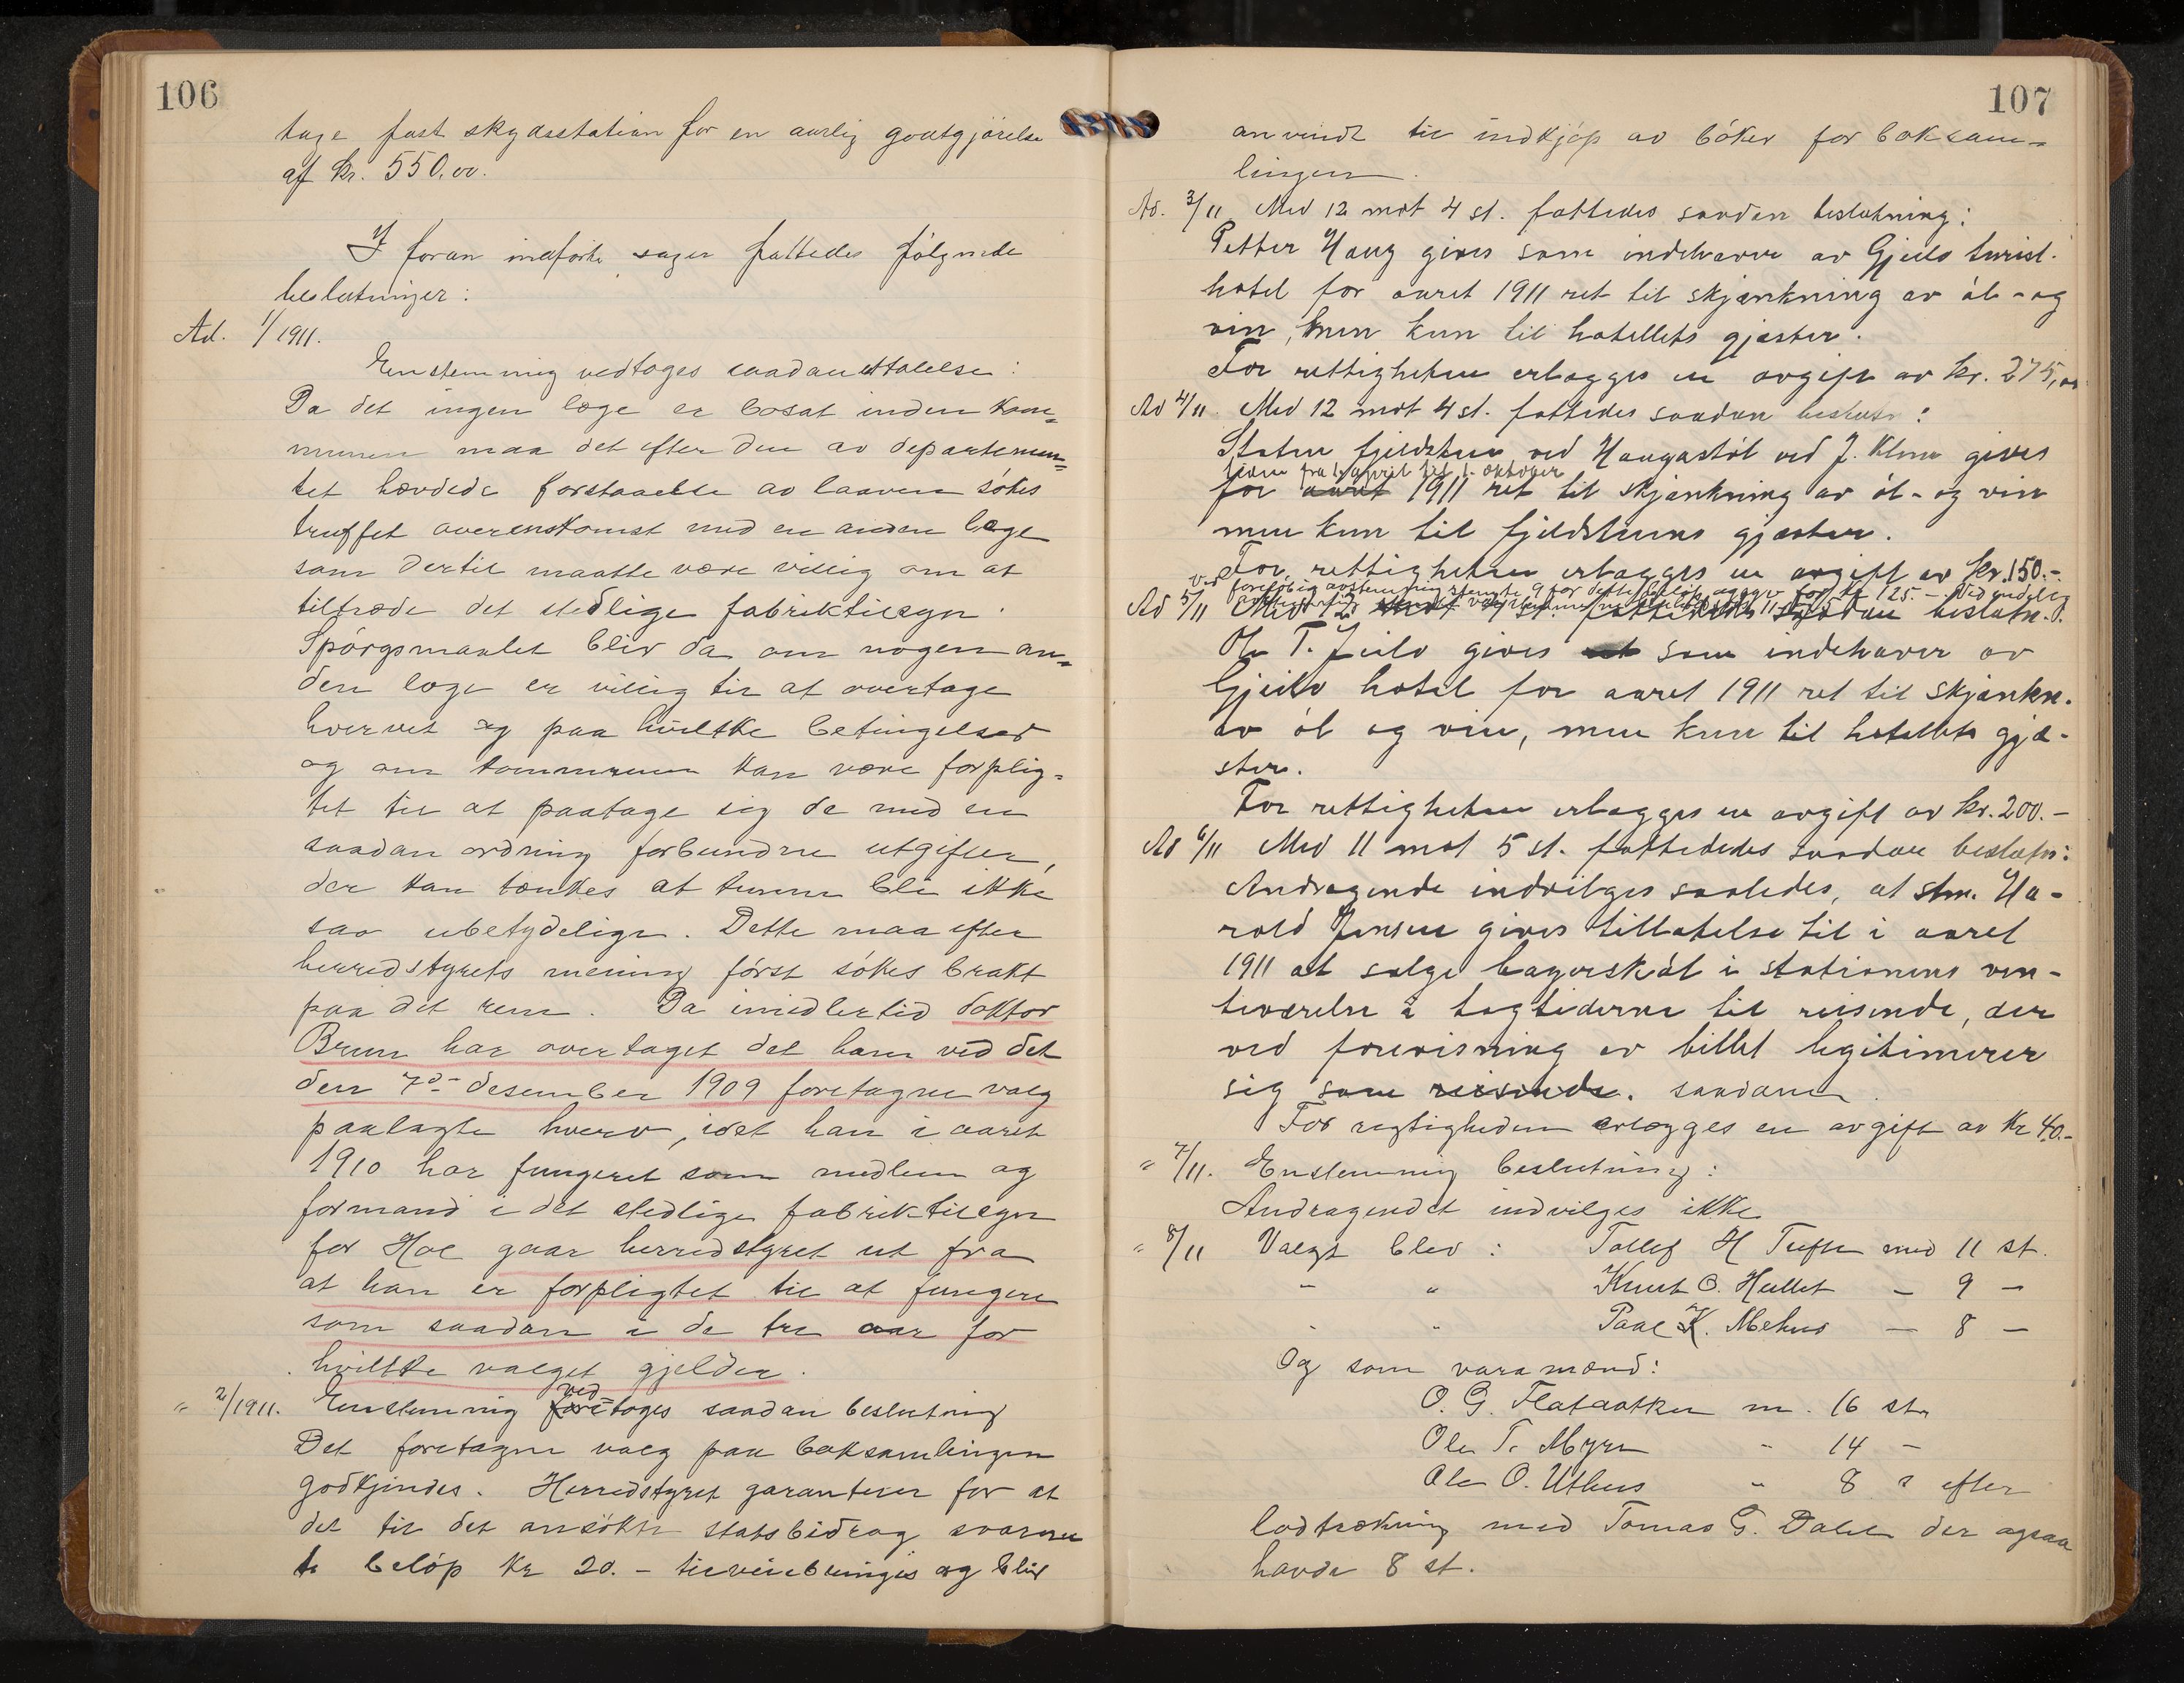 106
tage fast skydsstation for en aarlig godtgjörelse
af kr. 550.00.
I foran indførte sager fattedes følgende
beslutninger:
Ad. 1/1911.
Enstemmig vedtoges saadan uttalelse:
Da det ingen læge er bosat inden kom=
munen maa det efter den av departemen=
tet hævdede forstaaelse av loven søkes
truffet overenskomst med en anden læge
som dertil maatte være villig om at
tiltræde det stedlige fabriktilsyn.
Spørgsmaalet blir da om nogen an=
den læge er villig til at overtage
hvervet og paa hvilke betingelser
og om kommunen kan være forplig=
tet til at paatage sig de med en
saadan ordning forbundne utgifter,
der kan tænkes at kunne bli ikke
saa ubetydelige. Dette maa efter
herredstyrets mening først søkes brakt
paa det rene. Da imidlertid doktor
Brun har overtaget det ham ved det
den 7de desember 1909 foretagne valg
paalagte hverv, idet han i aaret
1910 har fungeret som medlem og
formand i det stedlige fabriktilsyn
for Hol gaar herredstyret ut fra
at han er forpligtet til at fungere
som saadan i de tre aar for
hvilke valget gjelder.
" 2/1911. Enstemmig foretoges ved saadan beslutning
Det foretagne valg paa boksamlingen
godkjendes. Herredstyret garanterer for at
det til det ansøkte statsbidrag svarende
beløp kr 20.- tilveiebringes og blir
107
anvendt til indkjøp av bøker for boksam=
lingen.
Ad. 3/11 Med 12 mot 4 st. fattedes saadan beslutning:
Petter Haug gives som indehaver av Gjeilo turist-
hotel for aaret 1911 ret til skjænkning av øl- og
vin, men kun til hotellets gjæster.
For rettigheten erlægges en avgift av kr. 275,00
Ad 4/11. Med 12 mot 4 st. fattedes saadan beslutn:
Statens fjeldstue ved Haugastøl ved J. Klem gives
tiden fra 1. april til 1. oktober
for aaret 1911 ret til skjænkning av øl- og vin
men kun til fjeldstuens gjæster.
For rettigheten erlægges en avgift av kr. 150.-
ved foreløbig avstemning stemte 9 for dette beløp for kr 125.- Ved endelig
Ad 5/11 Med 12 mot 4 st. fattedes saadan beslutn.:
Ole T. Jeilo gives som indehaver av
Gjeilo hotel for aaret 1911 ret til skjænkn.
av øl og vin, men kun til hotellets gjæ-
ster.
For rettigheten erlægges en avgift av kr. 200.-
Ad 6/11 Med 11 mot 5 st. fattededes saadan beslutn:
Andragende indvilges saaledes, at stm. Ha-
rald Jensen gives tillatelse til i aaret
1911 at sælge bayerskøl i stationens ven-
teværelse i togtiderne til reisende, der
ved forevisning av billet legitimerer
sig som reisende. saadan.
For rigtigheden erlægges en avgift av kr 40.-
" 7/11. Enstemmig beslutning:
Andragendet indvilges ikke
" 8/11 Valgt blev: Tollef H Tufte med 11 st.
- " Knut O. Hallet - 9 -
- " Paal K. Mehus - 8 -
Og som varamænd:
O. G. Flataaker m. 16 st.
Ole T. Myren " 14 -
Ole O. Uthus " 8 " efter
lodtrækning med Tomas G. Dahle der ogsaa
havde 8 st.